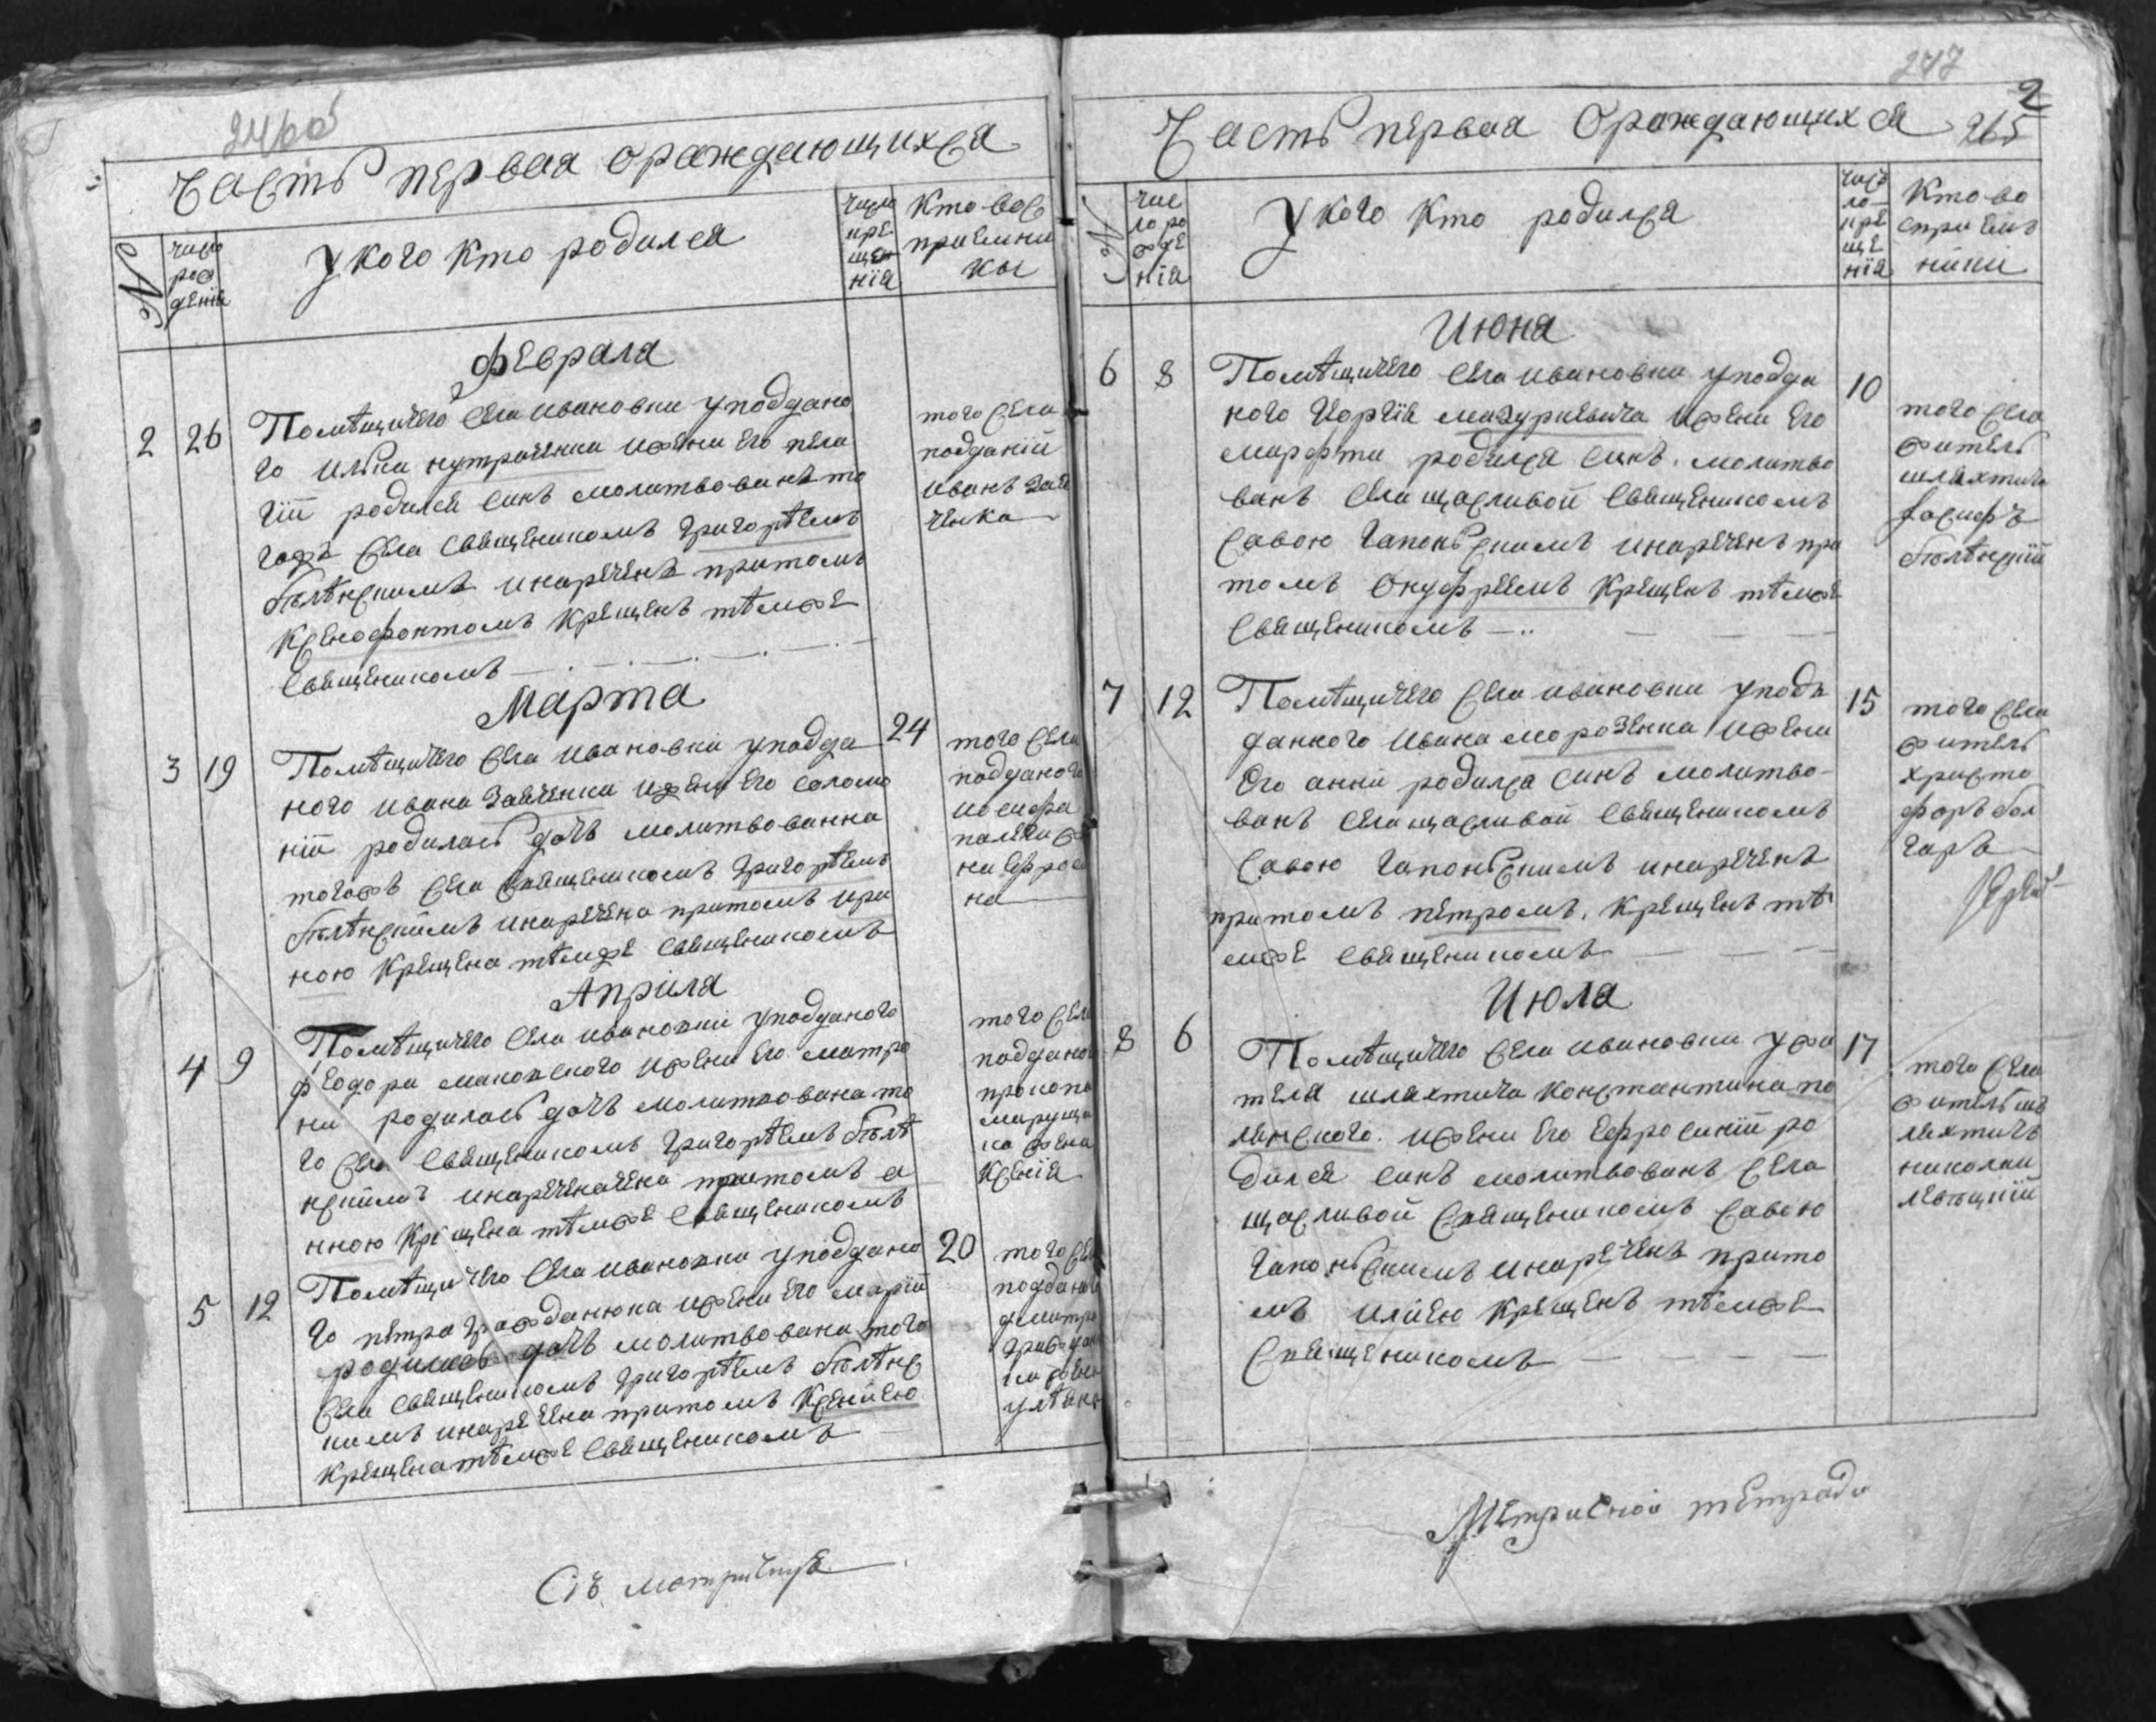 246об
Часть первая ораждающихся
N
число рождения
У кого кто родился
число крещения
кто восприемники
Февраля
2 26
Помѣщичего села ивановки у поддано
го илька кутраченка и жени его пела
гіи родился синъ молитвованъ то
гожъ села священикомъ григоріемъ
бѣлѣнскимъ и нареченъ притомъ
Ксенофонтомъ крещенъ тѣмже
священикомъ
того села
подданій
иванъ зая
ченко
Марта
3 19
Помѣщичего села ивановки у подда
ного ивана заяченка и жени его соломо
ніи родилась дочъ молитвованна
тогожъ села священикомъ григоріемъ
бѣлѣнскимъ и наречена притомъ ири
ною крещена тѣмже священикомъ
24
того села
подданого
иосифа
жо
на ефроси
на
Апріля
4 9
Помѣщичего села ивановки у подданого
феодора маковского и жени его матро
ни родилась дочъ молитвована то
го села священикомъ григоріемъ бѣлѣ
нскимъ и нареченачена притомъ а
нною крещена тѣмже священикомъ
того села
подданого
прокопа
марущ
ка жена
Ксенія
5 12
Помѣщичего села ивановки у поддано
го петра гражданюка и жени его маріи
родилась дочъ молитвована того
села священикомъ григоріемъ бѣлѣнс
кимъ и наречена притомъ Ксеніею
крещена тѣмже священикомъ
20
того села
подданого
дмитра
граждан
ка жена
улѣяна
Сiя метрическа
247
2
265
Часть первая Ораждающихся
N
число рождения
У кого кто родился
число крещения
Кто восприемники
Июня
6 8
Помѣщичего села ивановки у подда
ного Иоргія мазуркевича и жени его
марфти родился синъ. молитво
ванъ села щасливой священикомъ
Савою гапоньскимъ и нареченъ при
томъ Онуфріемъ крещенъ тѣмже
священикомъ
10
того села
житель
шляхтичъ
Іосифъ
бѣлѣнскій
7 12
Помѣщичего села ивановки у подъ
данного ивана морозенка и жени
Его анни родился синъ молитво-
ванъ села щасливой священикомъ
Савою гапоньскимъ и нареченъ
притомъ петромъ. крещенъ тѣ
мже священикомъ
15
того села
житель
христо
форъ бол
гаръ
Іерей
Июля
8 6
Помѣщичего села ивановки у жи
теля шляхтича константина по
лянского. и жени его ефросиніи ро
дился синъ молитвованъ села
щасливой священикомъ савою
гапоньскимъ и нареченъ прито
мъ илиею крещенъ тѣмже
священикомъ
17
того села
житель ш
ляхтичъ
николаи
левицкій
Метрисной тетради